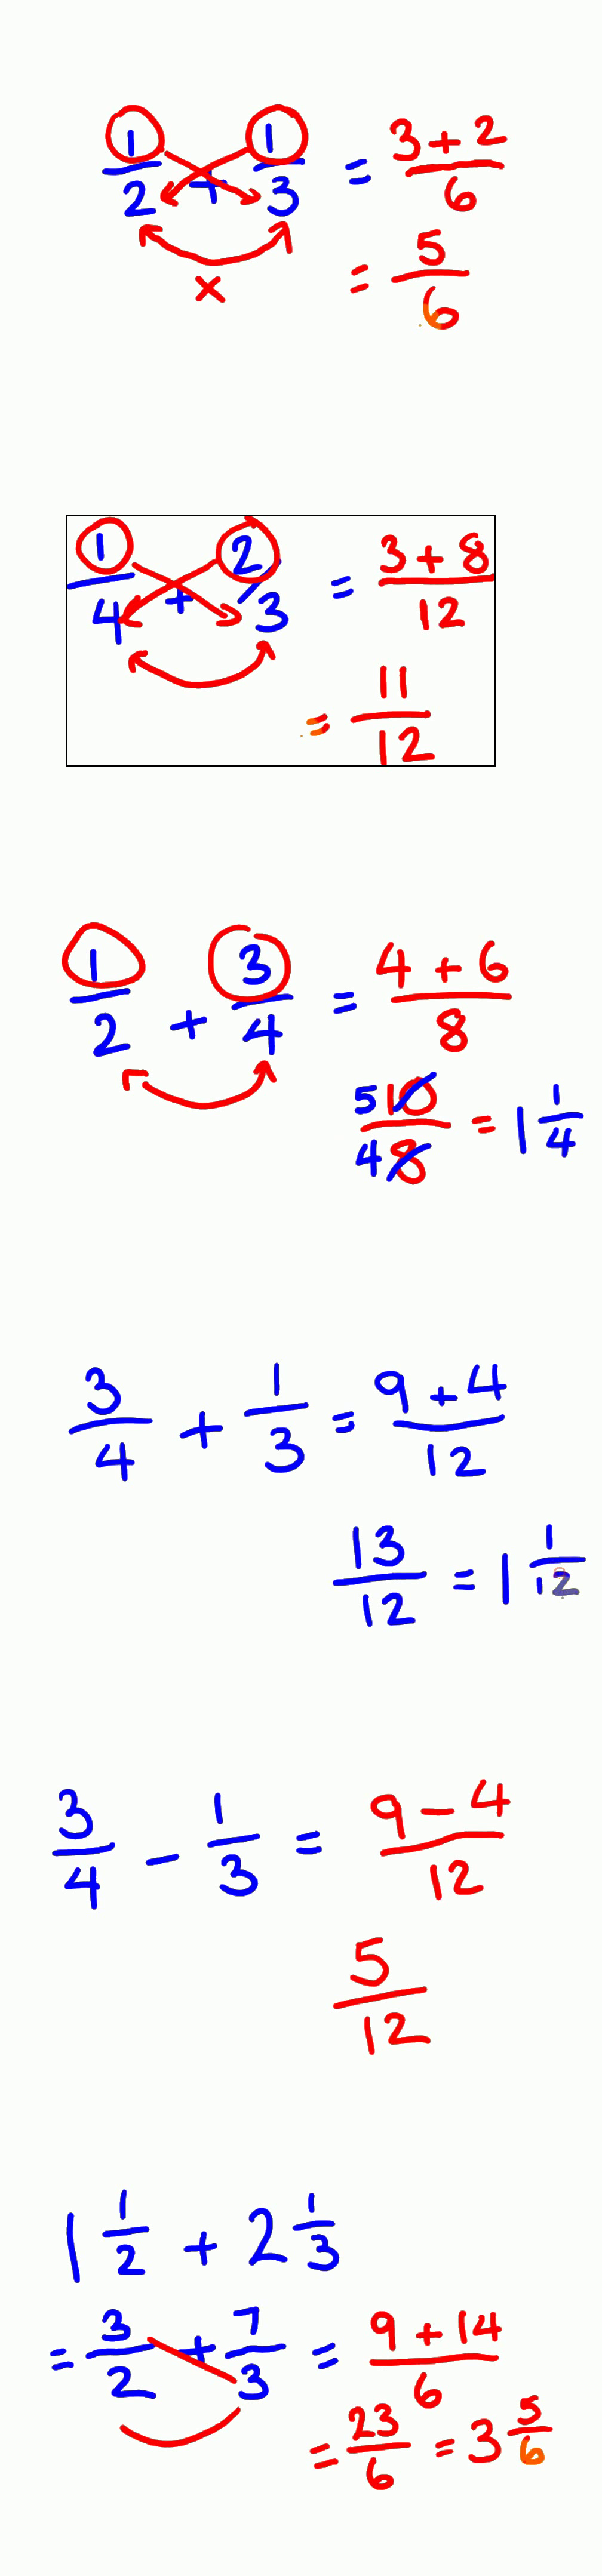 1/2 + 1/3 = (3 + 2)/6
×
= 5/6
1/4 + 2/3 = (3 + 8)/12
= 11/12
1/2 + 3/4 = (4 + 6)/8
5 10 / 4 8 = 1 1/4
3/4 + 1/3 = (9 + 4)/12
13/12 = 1 1/12
3/4 - 1/3 = (9 - 4)/12
5/12
1 1/2 + 2 1/3
= 3/2 + 7/3 = (9 + 14)/6
= 23/6 = 3 5/6